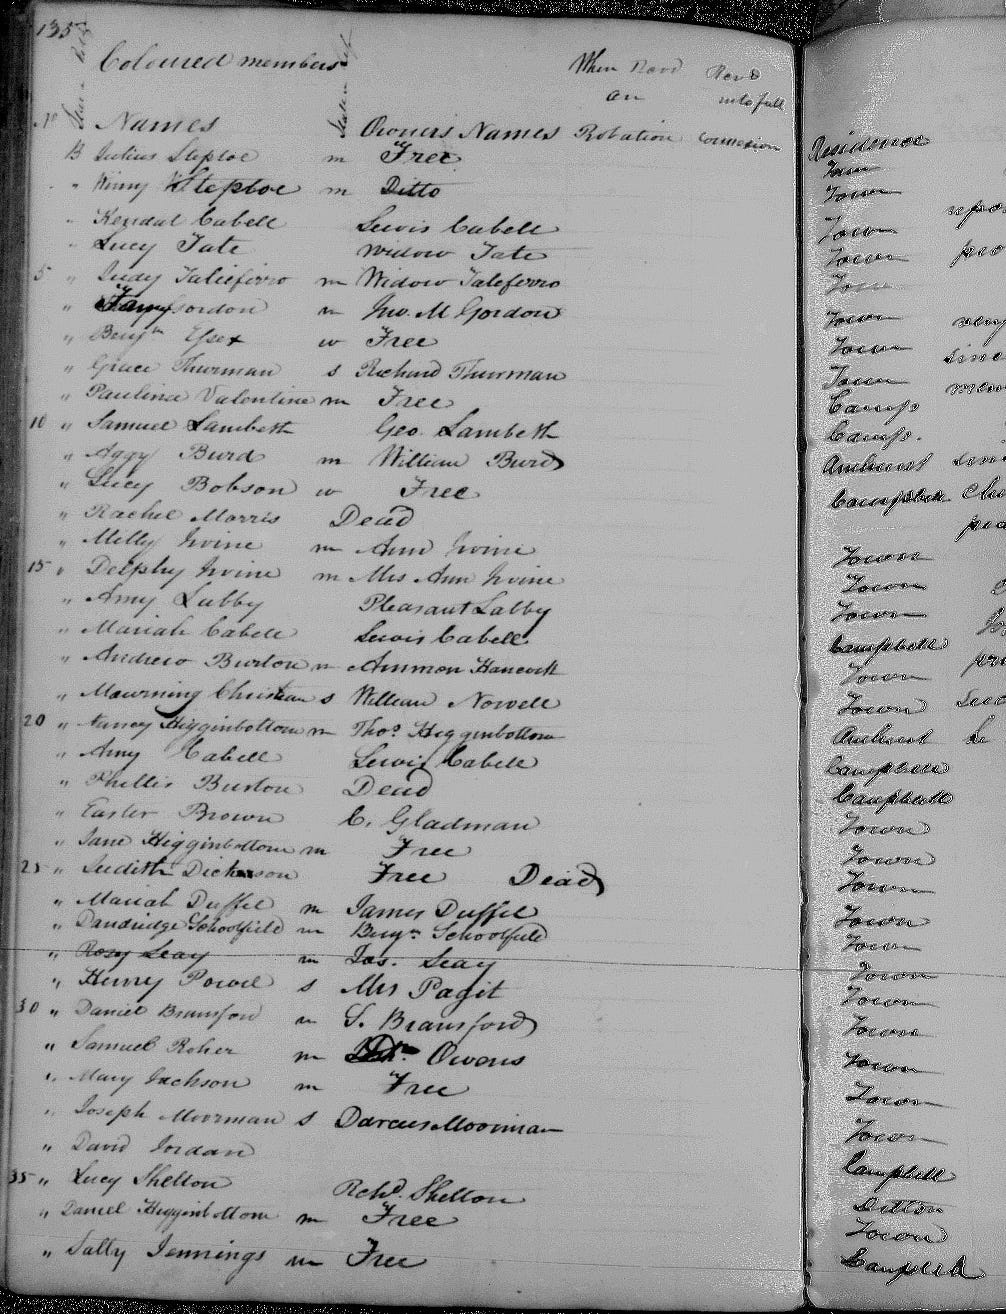 135
Coloured members
When Recd Recd
on into full
No Names Owners Names Probation connexion Residence
B Julius Steptoe m Free Town
" Winny Steptoe m Ditto Town
" Kendal Cabell Lewis Cabell Town
" Lucy Tate Widow Tate Town
5 " Judy Talieferro m Widow Taleferro Town
" Fanny Gordon m Jno. M Gordon Town
" Benjn Essex w Free Town
" Grace Thurman s Richard Thurman Town
" Paulina Valentine m Free Camp
10 " Samuel Lambeth Geo. Lambeth Camp.
" Aggy Burd m William Burd Amherst
" Lucy Bobson w Free Campbell
" Rachel Morris Dead
" Milly Irvine m Ann Irvine Town
15 " Delphy Irvine m Mrs Ann Irvine Town
" Amy Labby Pleasant Labby Town
" Mariah Cabell Lewis Cabell Campbell
" Andrew Burton m Ammon Hancock Town
" Mourning Christian s William Nowell Town
20 " Nancy Higginbottom m Thos. Higginbottom Amherst
" Amy Cabell Lewis Cabell Campbell
" Phillis Burton Dead Campbell
" Easter Brown C. Gladman Town
" Jane Higginbottom m Free Town
25 " Judith Dickerson Free Dead Town
" Mariah Duffel m James Duffel Town
" Dandridge Schoolfield m Benjn Schoolfield Town
" Rosy Seay m Jas. Seay Town
" Henry Powel s Mrs Pagit Town
30 " Daniel Bransford m S. Bransford Town
" Samuel Roher m Owens Town
" Mary Jackson m Free Town
" Joseph Moorman s Darcus Moorman Town
" David Jordan Campbell
35 " Lucy Shelton Rchd. Shelton Ditton
" Daniel Higginbottom m Free Town
" Sally Jennings m Free Campbell